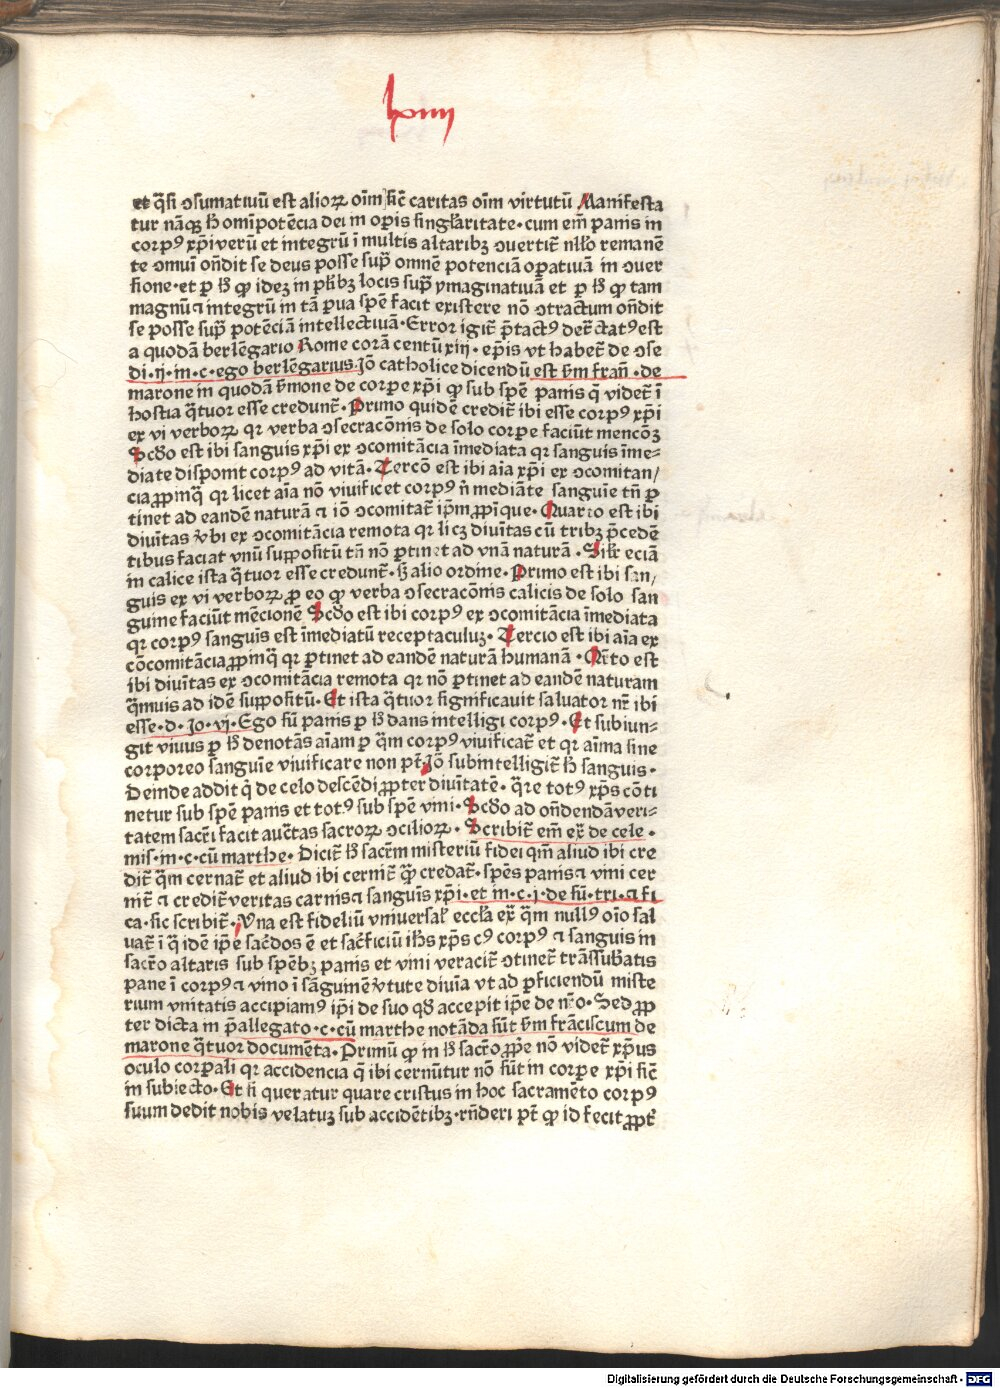 lxiiij
et q̃si ɔsumatiuũ est alioꝝ oĩm sic̃ caritas oĩm virtutũ Manifesta
tur nãqꝫ h̃ omĩpotẽcia dei in oꝑis singl̃aritate· cum em̃ panis in
corpꝰ xp̃i verũ et integrũ ĩ multis altaribꝫ ɔuertit̃ nll̃o remanẽ
te omĩ on̄dit se deus posse sup̃ omnẽ potenciã oꝑatiuã in ɔuer
sione·et ꝑ h̃ ꝙ ideꝫ in pl̃ibꝫ locis sup̃ ymaginatiuã et ꝑ h̃ ꝙ tam
magnũ ⁊ integrũ in tã ꝑua spẽ facit existere nõ ɔtractum on̄dit
se posse sup̃ potẽciã intellectiuã·Error igit̃ p̃tactꝰ det̃ctatꝰ est
a quodã berlẽgario Rome corã centũ xiij · ep̃is vt habet̃ de ɔse
di·ij·m·c·ego berlẽgarius Jõ catholice dicendũ est s̃m frañ ·de
marone in quodã s̃mone de corꝑe xp̃i ꝙ sub spẽ panis q̃ videt̃ ĩ
hostia q̃tuor esse credunt̃·Primo quidẽ credit̃ ibi esse corpꝰ xp̃i
ex vi verboꝝ qr verba ɔsecracõnis de solo corꝑe faciũt mencõꝫ
Scd̃o est ibi sanguis xp̃i ex ɔcomitãcia ĩmediata qr sanguis ĩme⸗
diate disponit corpꝰ ad vitã·Tercõ est ibi aĩa xp̃i ex ɔcomitan/
cia ꝓpinq̃ qr licet aĩa nõ viuificet corpꝰ ñ mediãte sanguĩe tñ ꝑ
tinet ad eandẽ naturã ⁊ iõ ɔcomitat̃ ip̃m ꝓpĩque·Quarto est ibi
diuĩtas v̾bi ex ɔcomitãcia remota qr licꝫ diuĩtas cũ tribꝫ p̃cedẽ
tibus faciat vnũ suppositũ tñ nõ ꝑtinet ad vnã naturã ·Silr̃ eciã
in calice ista q̃tuor esse credunt̃· sꝫ alio ordine·Primo est ibi san/
guis ex vi verboꝝ ꝓ eo ꝙ verba ɔsecracõnis calicis de solo san
guine faciũt mẽcionẽ Scd̃o est ibi corpꝰ ex ɔcomitãcia ĩmediata
qr corpꝰ sanguĩs est ĩmediatũ receptaculuꝫ· Tercio est ibi aĩa ex
cõcomitãcia ꝓpinq̃ qr ꝑtinet ad eandẽ naturã humanã ·Qr̃to est
ibi diuĩtas ex ɔcomitãcia remota qr nõ ꝑtinet ad eandẽ naturam
q̃muis ad idẽ suppositũ·Et ista q̃tuor significauit saluator nr̃ ibi
esse·d·Jo·vj·Ego sũ panis ꝑ h̃ dans intelligi corpꝰ·Et subiun-
git viuus ꝑ h̃ denotãs aĩam ꝑ q̃m corpꝰ viuificat̃ et qr aĩma sine
corporeo sanguĩe viuificare non pt̃ Jõ subintelligit̃ h̃ sanguis·
Deinde addit q̃ de celo descẽdi ꝓpter diuĩtatẽ· q̃re totꝰ xp̃s cõti
netur sub spẽ panis et totꝰ sub spẽ vini·Scd̃o ad on̄dendã veri⸗
tatem sacr̃i facit auc̃tas sacroꝝ ɔcilioꝝ · Scribit̃ em̃ ex̃ de cele·
mis·m·c·cũ marthe· Dicit̃ h̃ sacr̃m misteriũ fidei qm̃ aliud ibi cre
dit̃ q̃m cernat̃ et aliud ibi cernit̃ q̃ꝫ credat̃· spẽs panis ⁊ vini cer
nit̃ ⁊ credit̃ veritas carnis ⁊ sanguĩs xp̃i·et in·c·j·de sũ·tri·⁊ fi
ca·sic scribit̃·Vna est fideliũ vniuersal̃ eccl̃ia ex̃ q̃m nullꝰ oĩo sal
uat̃ ĩ q̃ idẽ ip̃e sac̃dos ẽ et sac̃ficiũ ih̃s xp̃s cꝰ corpꝰ ⁊ sanguis in
sacr̃o altaris sub spẽbꝫ panis et vini veracit̃ ɔtinet̃ trãssub̃atis
pane ĩ corpꝰ ⁊ vino ĩ sãguinẽ v̾tute diuĩa vt ad ꝑficiendũ miste
rium vnitatis accipiamꝰ ip̃i de suo qd̃ accepit ip̃e de nr̃o·Sed ꝓp
ter dicta in p̃allegato·c·cũ marthe notãda sũt s̃m frãciscum de
marone q̃tuor documẽta·Primũ ꝙ in h̃ sacr̃o ꝓp̃e nõ videt̃ xp̃us
oculo corꝑali qr accidencia q̃ ibi cernũtur nõ sũt in corꝑe xp̃i sic̃
in subiecto·Et si queratur quare cristus in hoc sacramẽto corpꝰ
suum dedit nobis velatuꝫ sub accidẽtibꝫ·rñderi pt̃ ꝙ id fecit ꝓpt̃
Digitalisierung gefördert durch die Deutsche Forschungsgemeinschaft · DFG